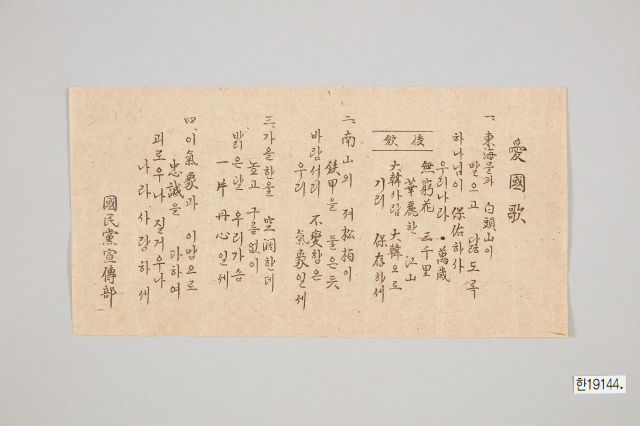 愛國歌
一、東海물과 白頭山이
말으고 닳도록
하나님이 保佑하사
우리나라 萬歲
後歛
無窮花 三千里
華麗한 江山
大韓사람 大韓으로
기리 保存하세
二、南山의 저松栢이
鉄甲을 둘은듯
바람서리 不變함은
우리 氣象일세
三、가을한울 空濶한데
높고 구름없이
밝은달 우리가슴
一片丹心일세
四、이氣象과 이맘으로
忠誠을 다하여
괴로우나 질거우나
나라사랑하세
國民黨宣傳部
한19144.